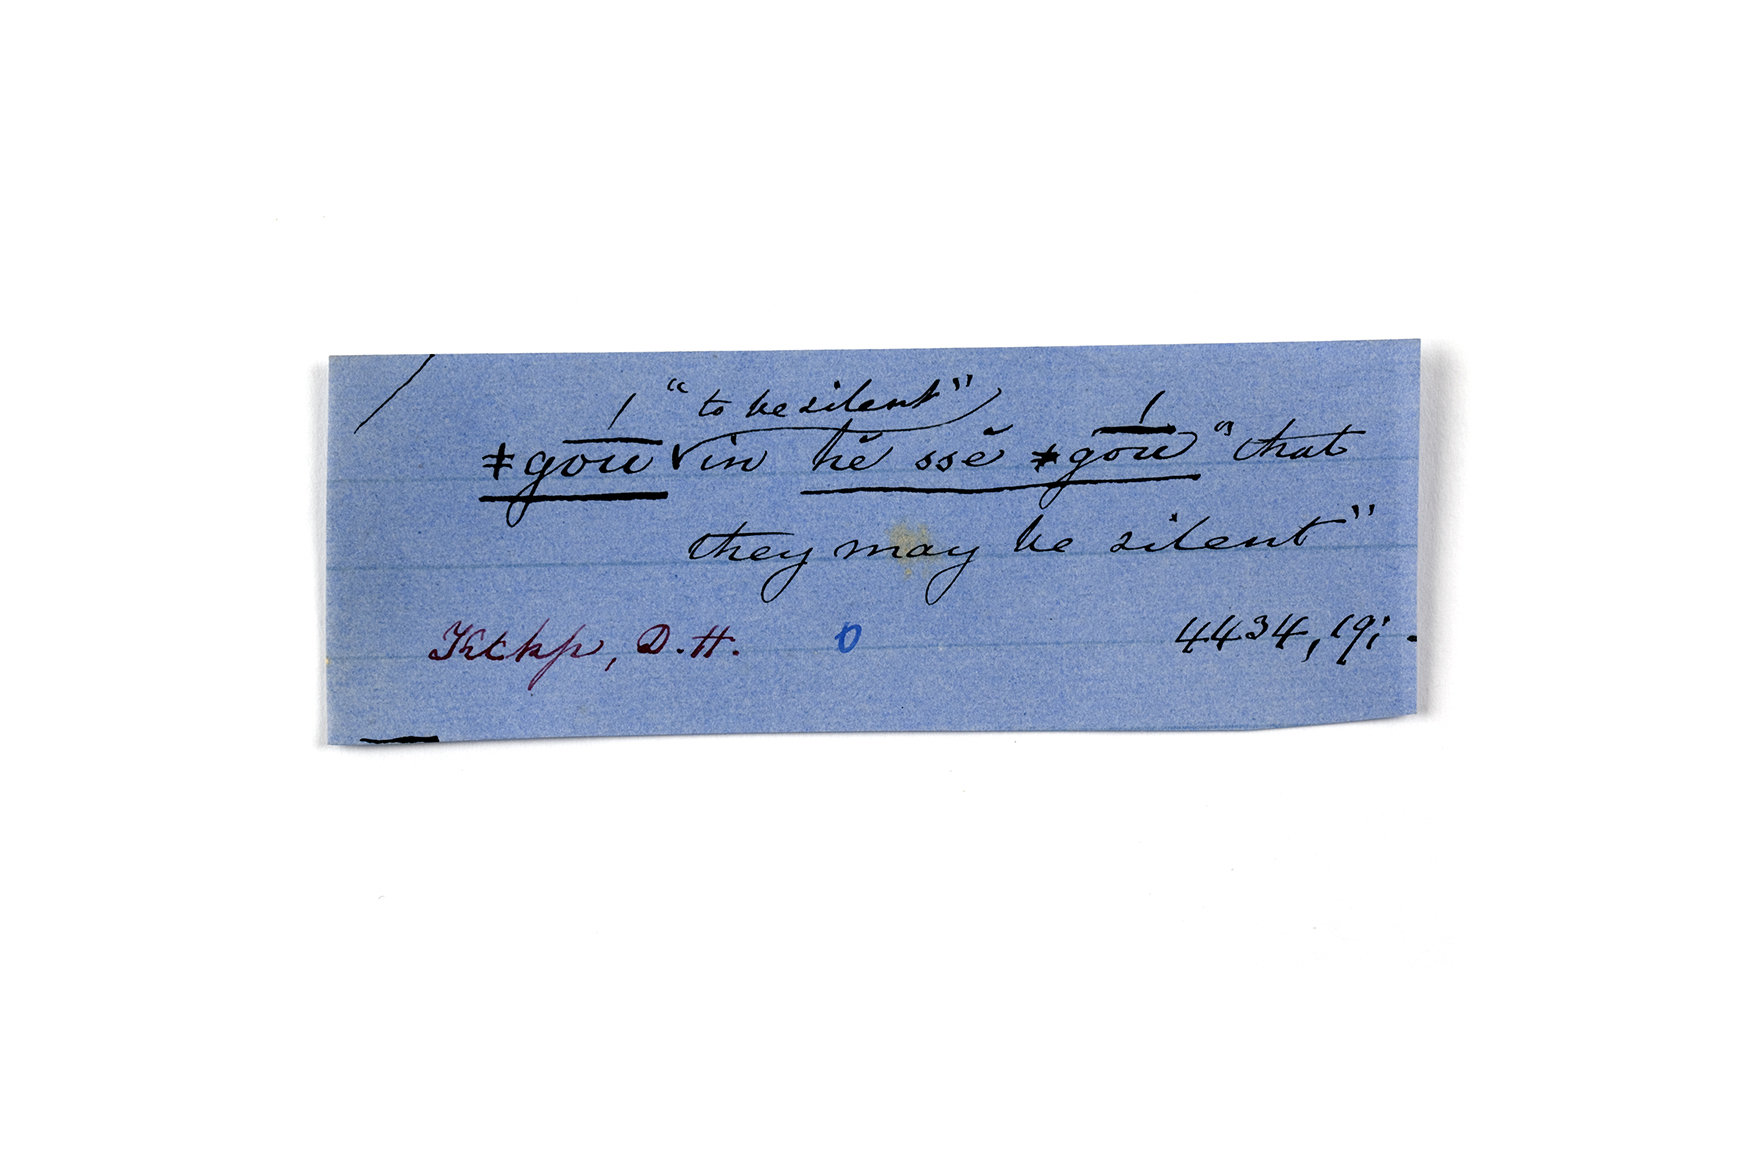 "to be silent"
ǂgo͞ú in hĕ ssĕ ǂgo͞ú "that
they may be silent"
Ktkp, D.H. 0 4434, 19;.